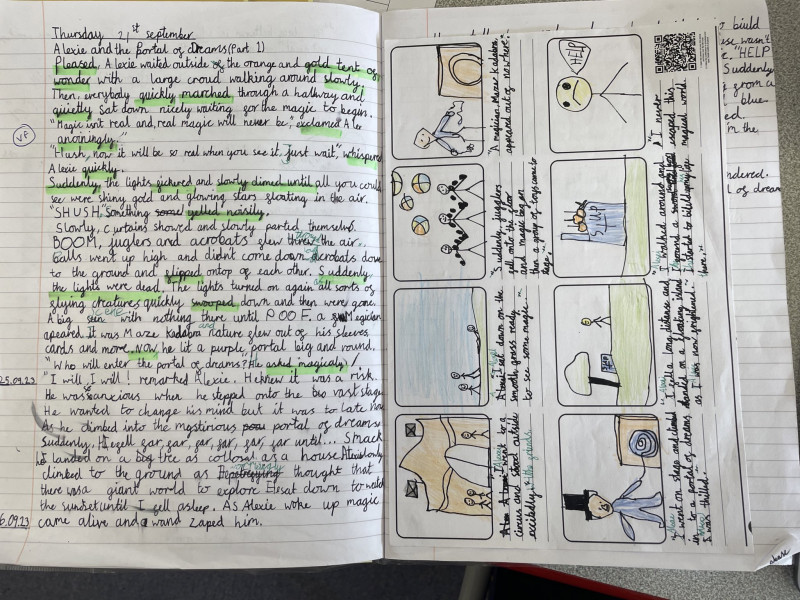 Thursday 21st september
Alexie and the Portal of dreams (Part 1)
Pleased, Alexie waited outside of the orange and gold tent of
wonder with a large croud walking around slowly.
Then, everybody quickly marched through a hallway and
quietly sat down nicely waiting for the magic to begin.
"Magic isn't real and, real magic will never be," exclamed Alex
anoiningly."
"Hush, now it will be so real when you see it, just wait," whispered
Alexie quickly.
Suddenly, the lights flickered and slowly dimed until all you could
see were shiny gold and glowing stars floating in the air.
"SHUSH," Something some yelled noisily.
Slowly, curtains showed and slowly parted themselfs.
BOOM, juglers and acrobats flew threw the air.
Balls went up high and didn't come down acrobats dove
to the ground and flipped ontop of each other. Suddenly
the lights were dead. The lights turned on again all sorts of
flying creatures quickly swooped down and then were gone.
A big scene with nothing there until POOF. a Magician
apeared. It was Maze Kadabra and nature flew out of his sleeves
cards and more. Now he lit a purple portal big and round.
"Who will enter the portal of dreams?" He asked magicaly
"I will, I will! remarked Alexie. He knew it was a risk.
He was anxious when he stepped onto the big vast stage
He wanted to change his mind but it was to late now
As he climbed into the mysterious portal of dreams
Suddenly, He fell far, far, far, far, far until... Smack
he landed on a big tree as collosol as a house Alexie slowly
climbed to the ground as thought that
there was a giant world to explore I sat down to watch
the sunset until I fell asleep. As Alexie woke up magic
came alive and a wand zaped him.
VF
25.09.23
6.09.23
"A magician Mazer Kadabra
appeared out of nowhere."
HELP
"Suddenly, jugglers
fell onto the floor
and magic began
then a group of toys came to
stage."
UP
"I walked around and
found a
I started to
there."
"I never
escaped this
magical world.
sat down on the
smooth grass ready
to see some magic."
"I fell a long distance and
landed on a floating island
as I was now frightened."
went to a
circus and stood outside
excitedly."
"I went on stage and climbed
in to a portal of dreams
I was thrilled."
build
wasn't
"HELP
Suddenly
from a
blue-
ed.
m the
ndered.
l of dream
share